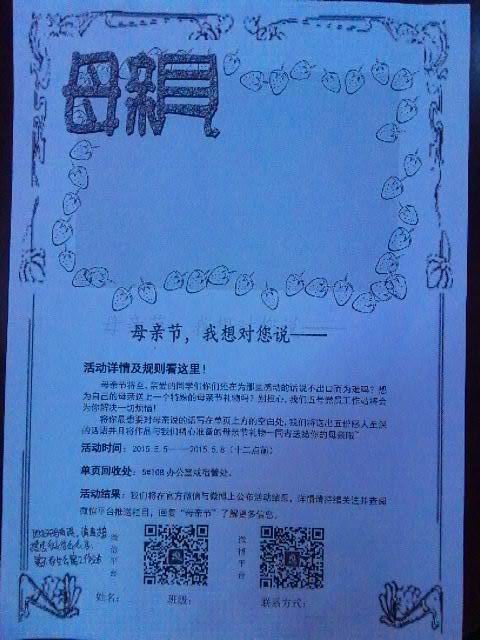 母亲
母亲节，我想对您说——
活动详情及规则看这里！
母亲节将至，亲爱的同学们你们还在为那些感动的话说不出口而为难吗？想
为自己的母亲送上一个特殊的母亲节礼物吗？别担心，我们五号党员工作站将会
为你解决一切烦恼！
将你最想要对母亲说的话写在单页上方的空白处，我们将选出五份感人至深
的话语并且将作品与我们精心准备的母亲节礼物一同寄送给你的母亲哦~
活动时间：2015.5.5——2015.5.8（十二点前）
单页回收处：5#108 办公室或宿管处。
活动结果：我们将在官方微信与微博上公布活动结果，详情请持续关注并查阅
微信平台推送栏目，回复“母亲节”了解更多信息。
微信平台
微博平台
姓名：
班级：
联系方式：